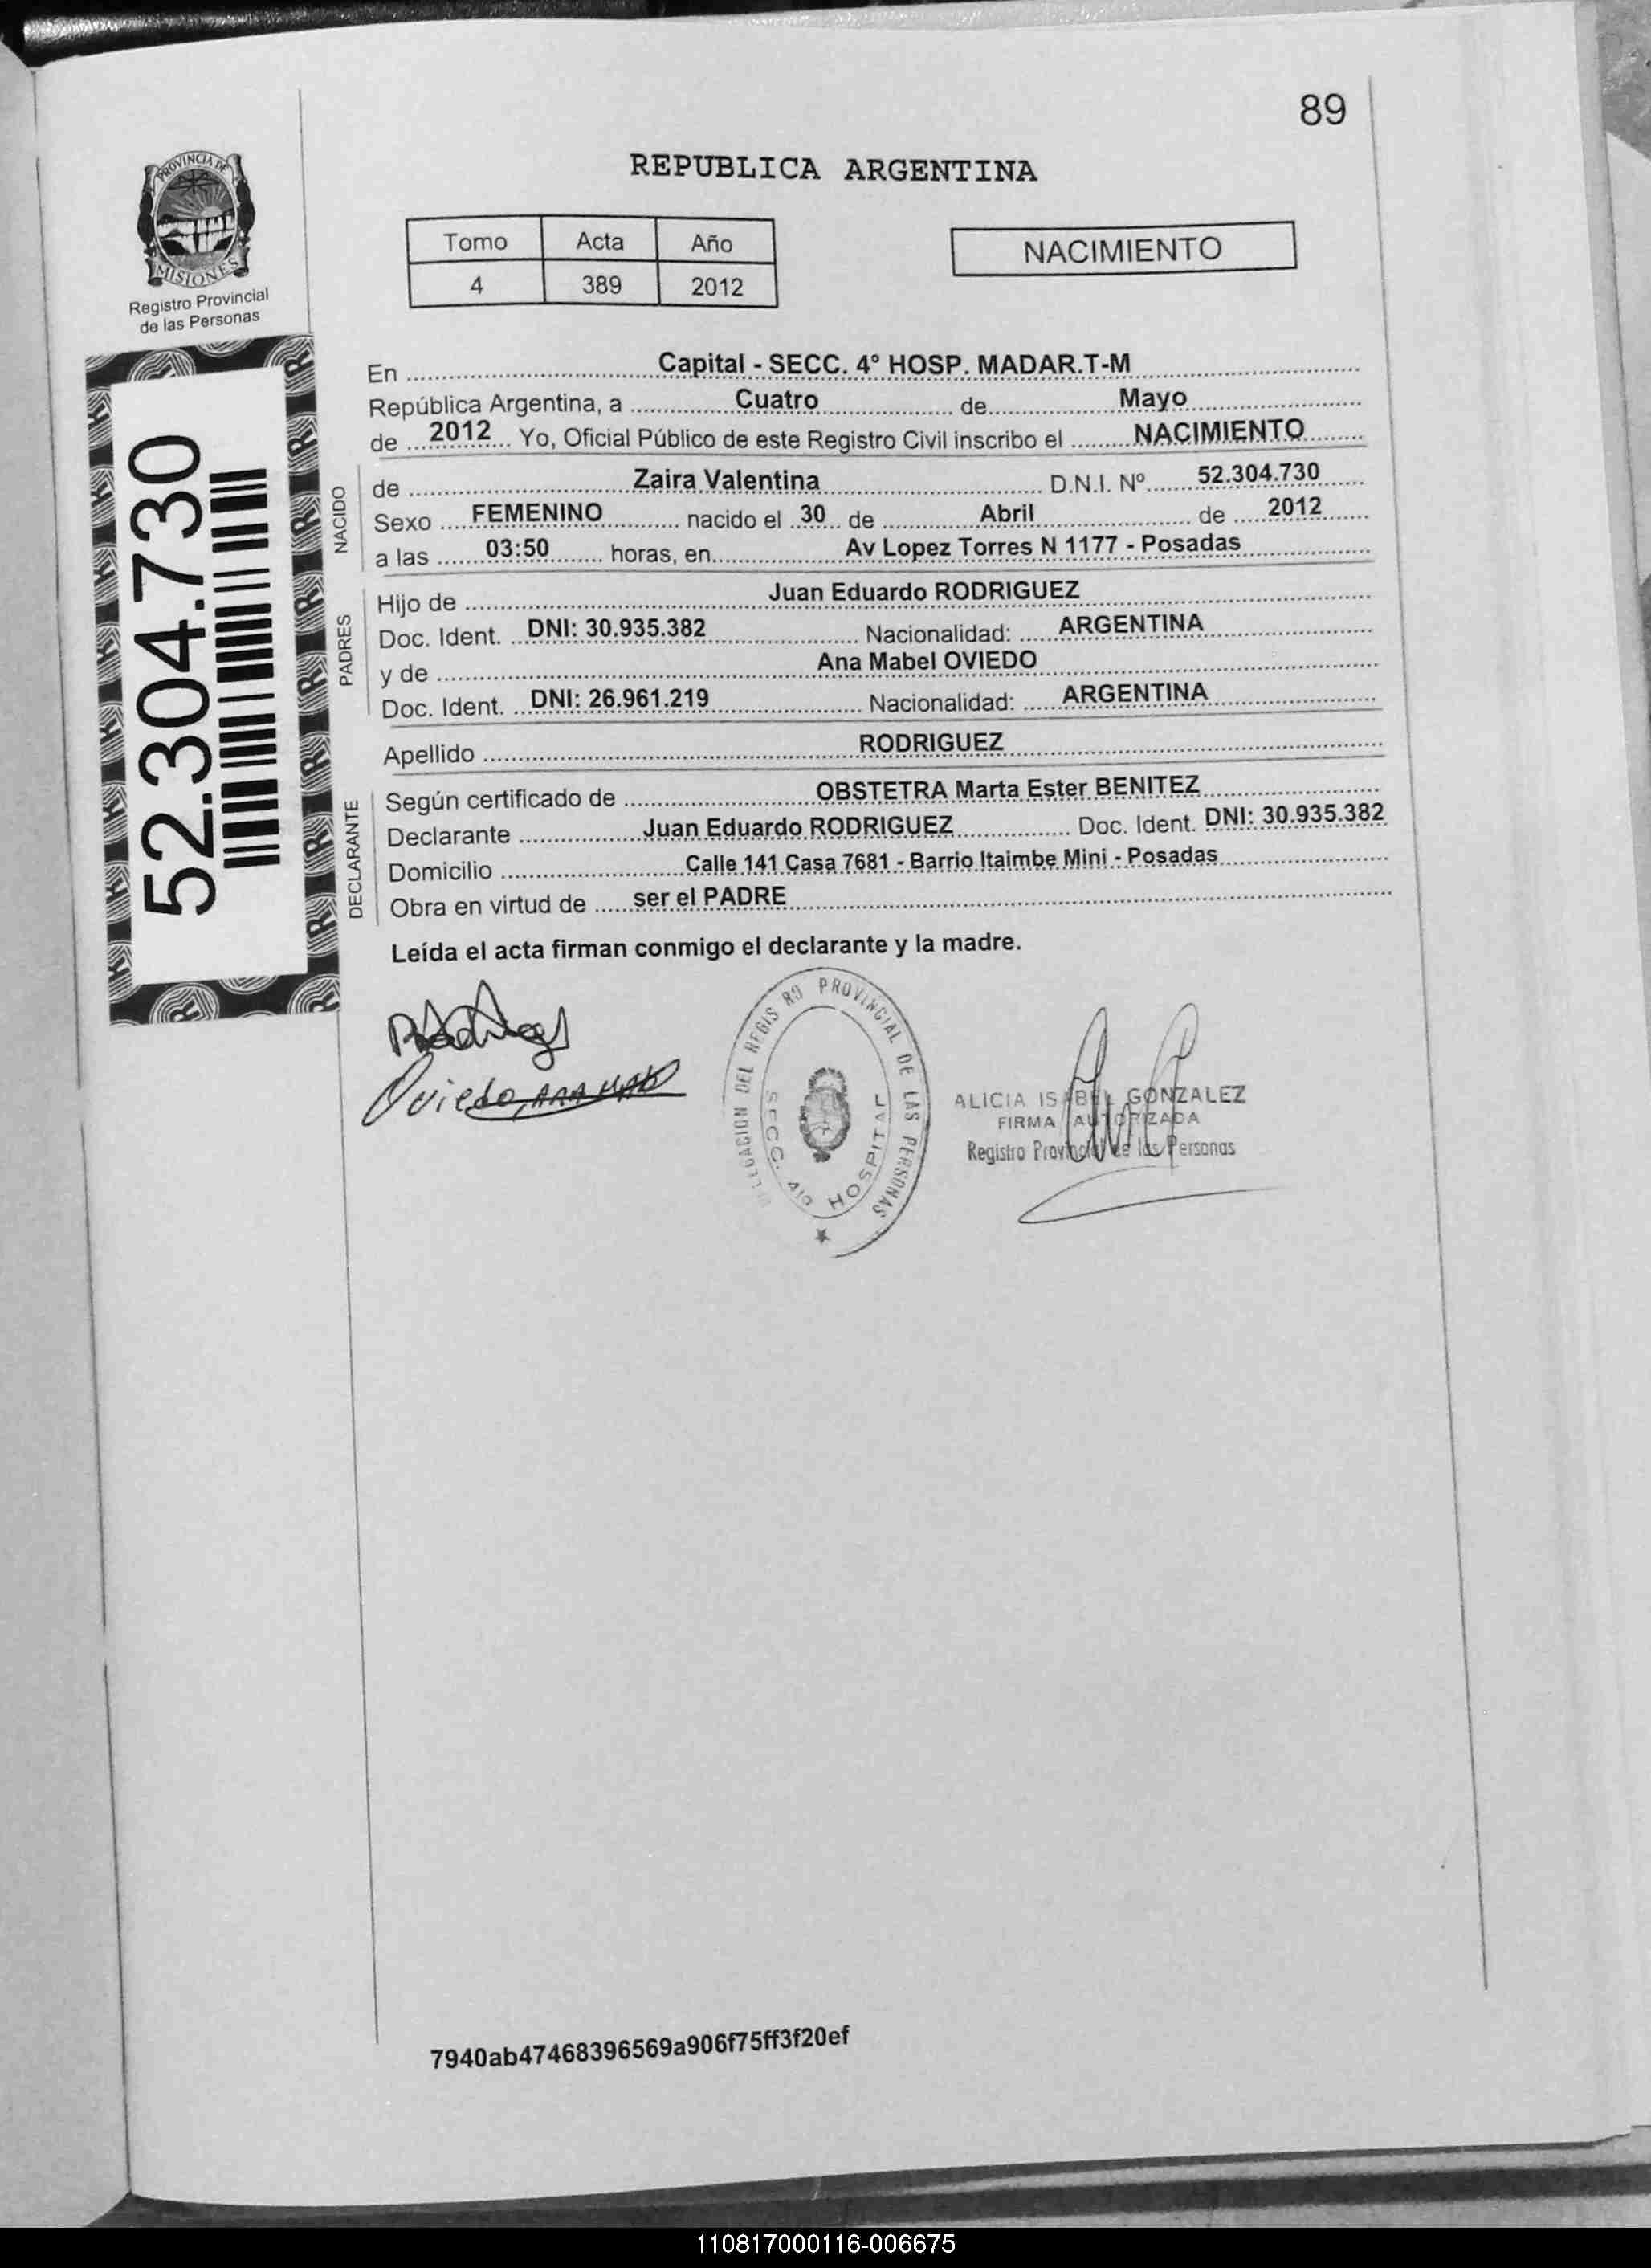 89
PROVINCIA DE
MISIONES
Registro Provincial
de las Personas
REPUBLICA ARGENTINA
Tomo Acta Año
4 389 2012
NACIMIENTO
52.304.730
En Capital - SECC. 4º HOSP. MADAR.T-M
República Argentina, a Cuatro de Mayo
de 2012 Yo, Oficial Público de este Registro Civil inscribo el NACIMIENTO
NACIDO
de Zaira Valentina D.N.I. Nº 52.304.730
Sexo FEMENINO nacido el 30 de Abril de 2012
a las 03:50 horas, en Av Lopez Torres N 1177 - Posadas
PADRES
Hijo de Juan Eduardo RODRIGUEZ
Doc. Ident. DNI: 30.935.382 Nacionalidad: ARGENTINA
y de Ana Mabel OVIEDO
Doc. Ident. DNI: 26.961.219 Nacionalidad: ARGENTINA
Apellido RODRIGUEZ
DECLARANTE
Según certificado de OBSTETRA Marta Ester BENITEZ
Declarante Juan Eduardo RODRIGUEZ Doc. Ident. DNI: 30.935.382
Domicilio Calle 141 Casa 7681 - Barrio Itaimbe Mini - Posadas
Obra en virtud de ser el PADRE
Leída el acta firman conmigo el declarante y la madre.
Oviedo,
DELEGACION DEL REGIS RO PROVINCIAL DE LAS PERSONAS
SECC. HOSPITAL
ALICIA ISABEL GONZALEZ
FIRMA AUTORIZADA
Registro Provincial de las Personas
7940ab47468396569a906f75ff3f20ef
110817000116-006675